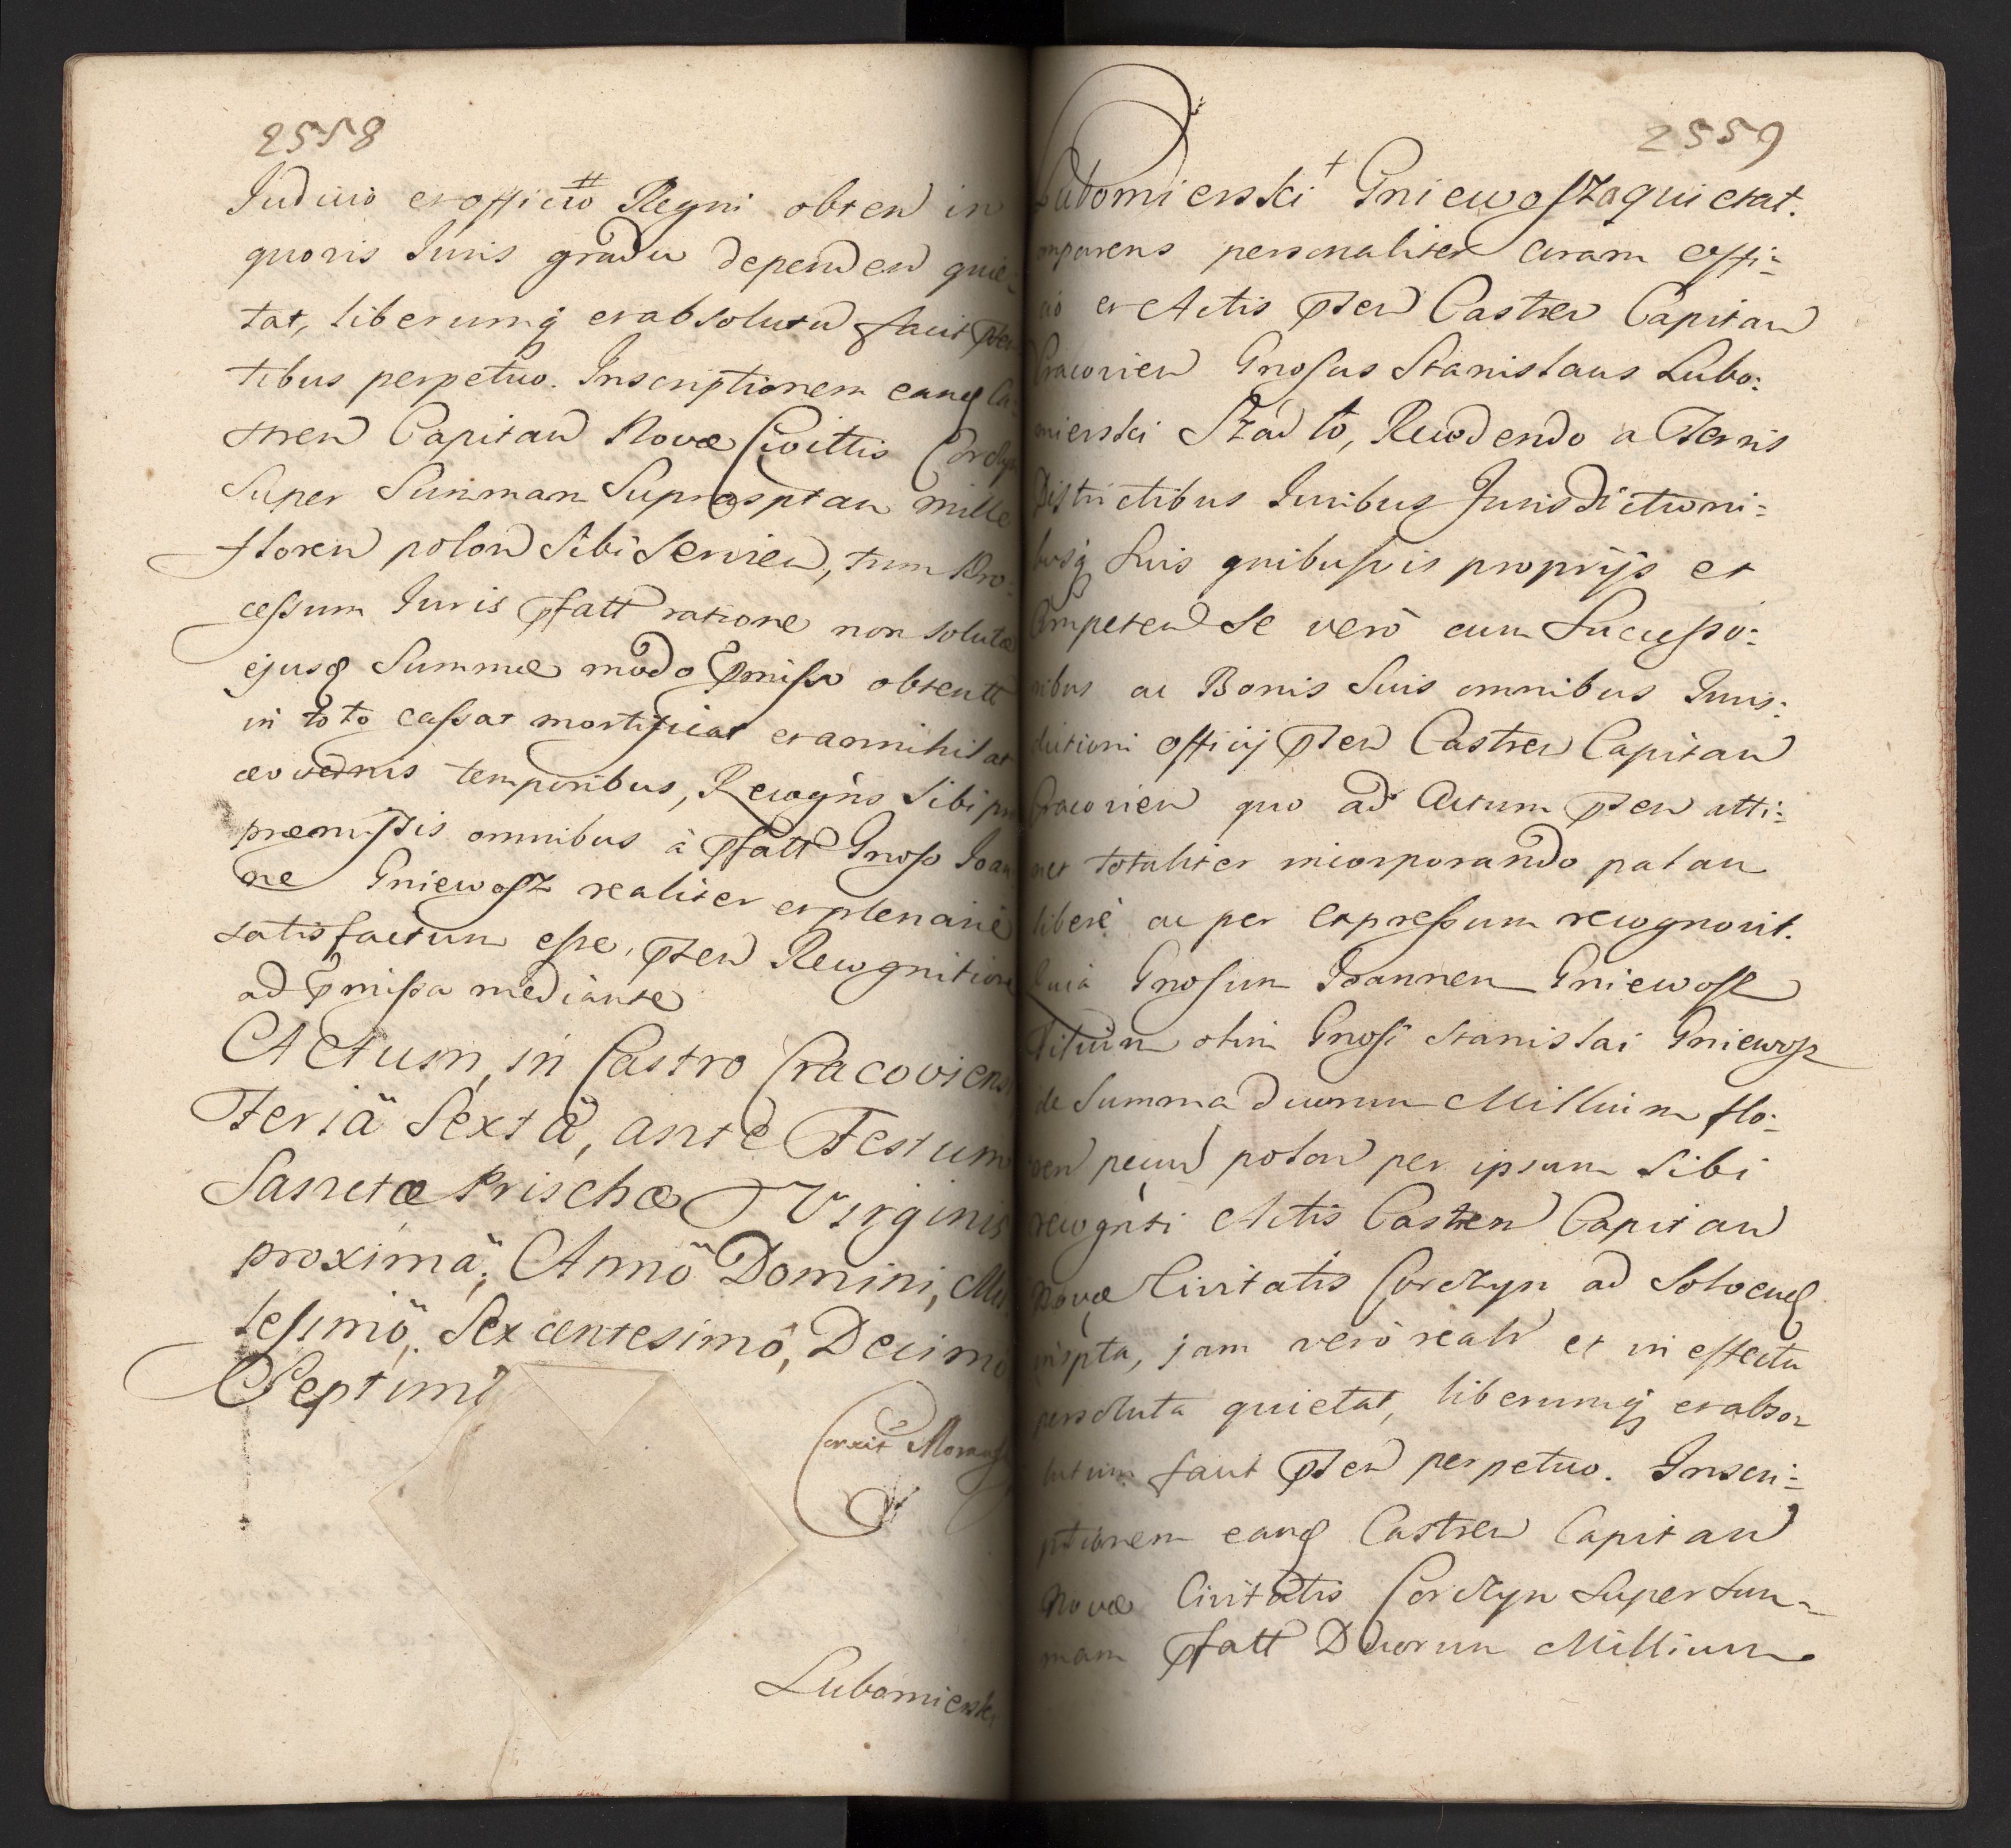 2558
Judicio et officio Regni obten in
quovis Juris gradu dependen quie-
tat, liberumq et absolutu facit pñ
tibus perpetuo. Inscriptionem eandq Ca-
stren Capitan Novæ Civittis Corczyn
Super Summam Suprasptam mille
floren polon Sibi Servien, tum Pro-
cessum Juris pfatt ratione non solutæ
ejusq Summæ modo pmisso obtentt
in toto cassat mortificat et annihilat
ævviternis temporibus, Recogńs Sibi pro
præmissis omnibus à pfatt Gnoso Joan
ne Gniewosz realiter et plenarie
satisfactum esse, pñten Recognitione
ad pmissa mediante
Actum, in Castro Cracoviens
Feriâ Sextâ, ante Festum
Sanctæ Prischæ Virginis
proximâ; Annô Domini, Mil
lesimô, Sexcentesimô, Decimo
Septimo
Corexit Morawsk
Lubomierski
2559
Lubomierski Gniewosza quietat.
omparens personaliter coram Offi=
cio et Actis pñten Castren Capitan
Cracovien Gnosus Stanislaus Lubo=
mierski Szadło, Recedendo a Terris
Districtibus Juribus Jurisdictioni=
busq Suis quibusvis proprijs et
Competen Se verò cum Successo=
ribus ac Bonis Suis omnibus Juris=
dictioni officij pñten Castren Capitan
Cracovien quo ad Actum pñten atti=
net totaliter incorporando palam
liberè ac per expressum recognovit.
Quia Gnosum Joannem Gniewosz
Filium olim Gnosi Stanislai Gniewosz
de Summa duorum Millium flo=
ren pecun polon per ipsum Sibi
recognti Actis Castren Capitan
Novæ Civitatis Corczyn ad Solvend
inspta, jam verò realr et in effectu
persoluta quietat, liberumq et abso=
lutum facit pñten perpetuo. Inscri=
ptionem eand Castren Capitan
Novæ Civitatis Corczyn Super Sum=
mam pfatt Duorum Millium